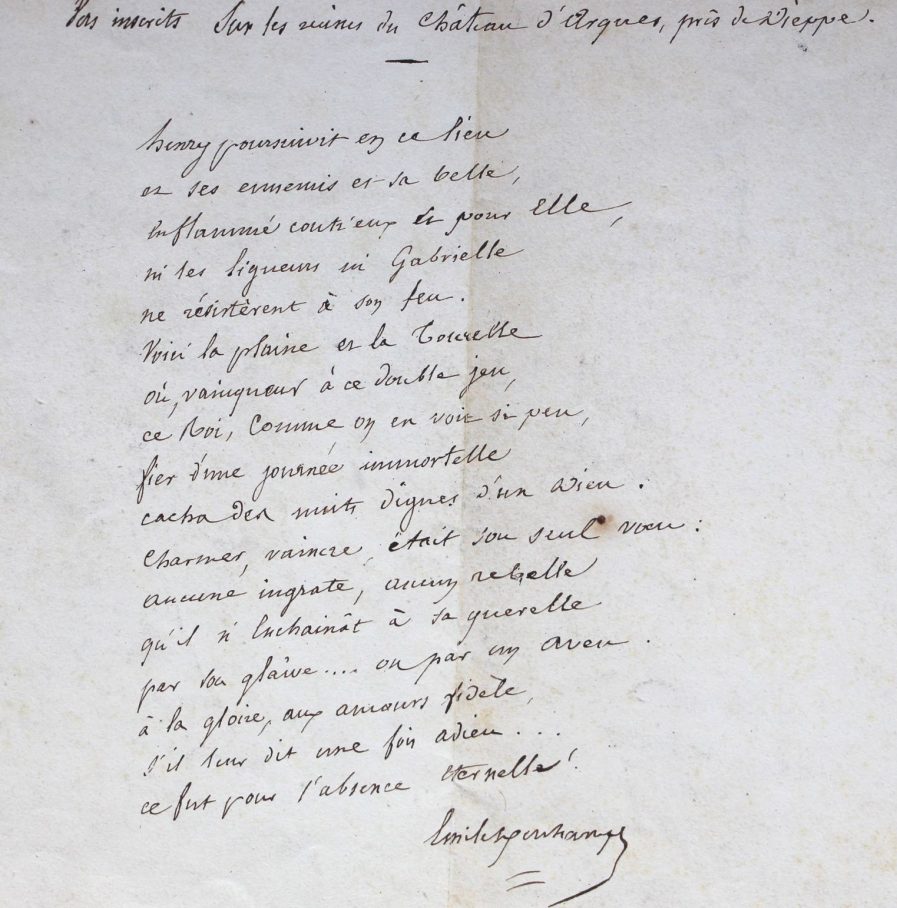 Vers inscrits Sur les ruines du Château d'Arques, près de Dieppe.
henry poursuivit en ce lieu
et ses ennemis et sa belle,
Enflammé contr'eux et pour Elle,
ni les ligueurs ni Gabrielle
ne résistèrent à son feu.
Voici la plaine et la Tourelle
où, vainqueur à ce double jeu,
ce Roi, Comme on en voit si peu,
fier d'une journée immortelle
cacha des nuits dignes d'un Dieu.
Charmer, vaincre, était son seul vœu :
aucune ingrate, aucun rebelle
qu'il n'Enchainât à sa querelle
par son glaive.... ou par un aveu.
à la gloire, aux amours fidèle,
s'il leur dit une fois adieu...
ce fut pour l'absence éternelle !
Emile Deschamps